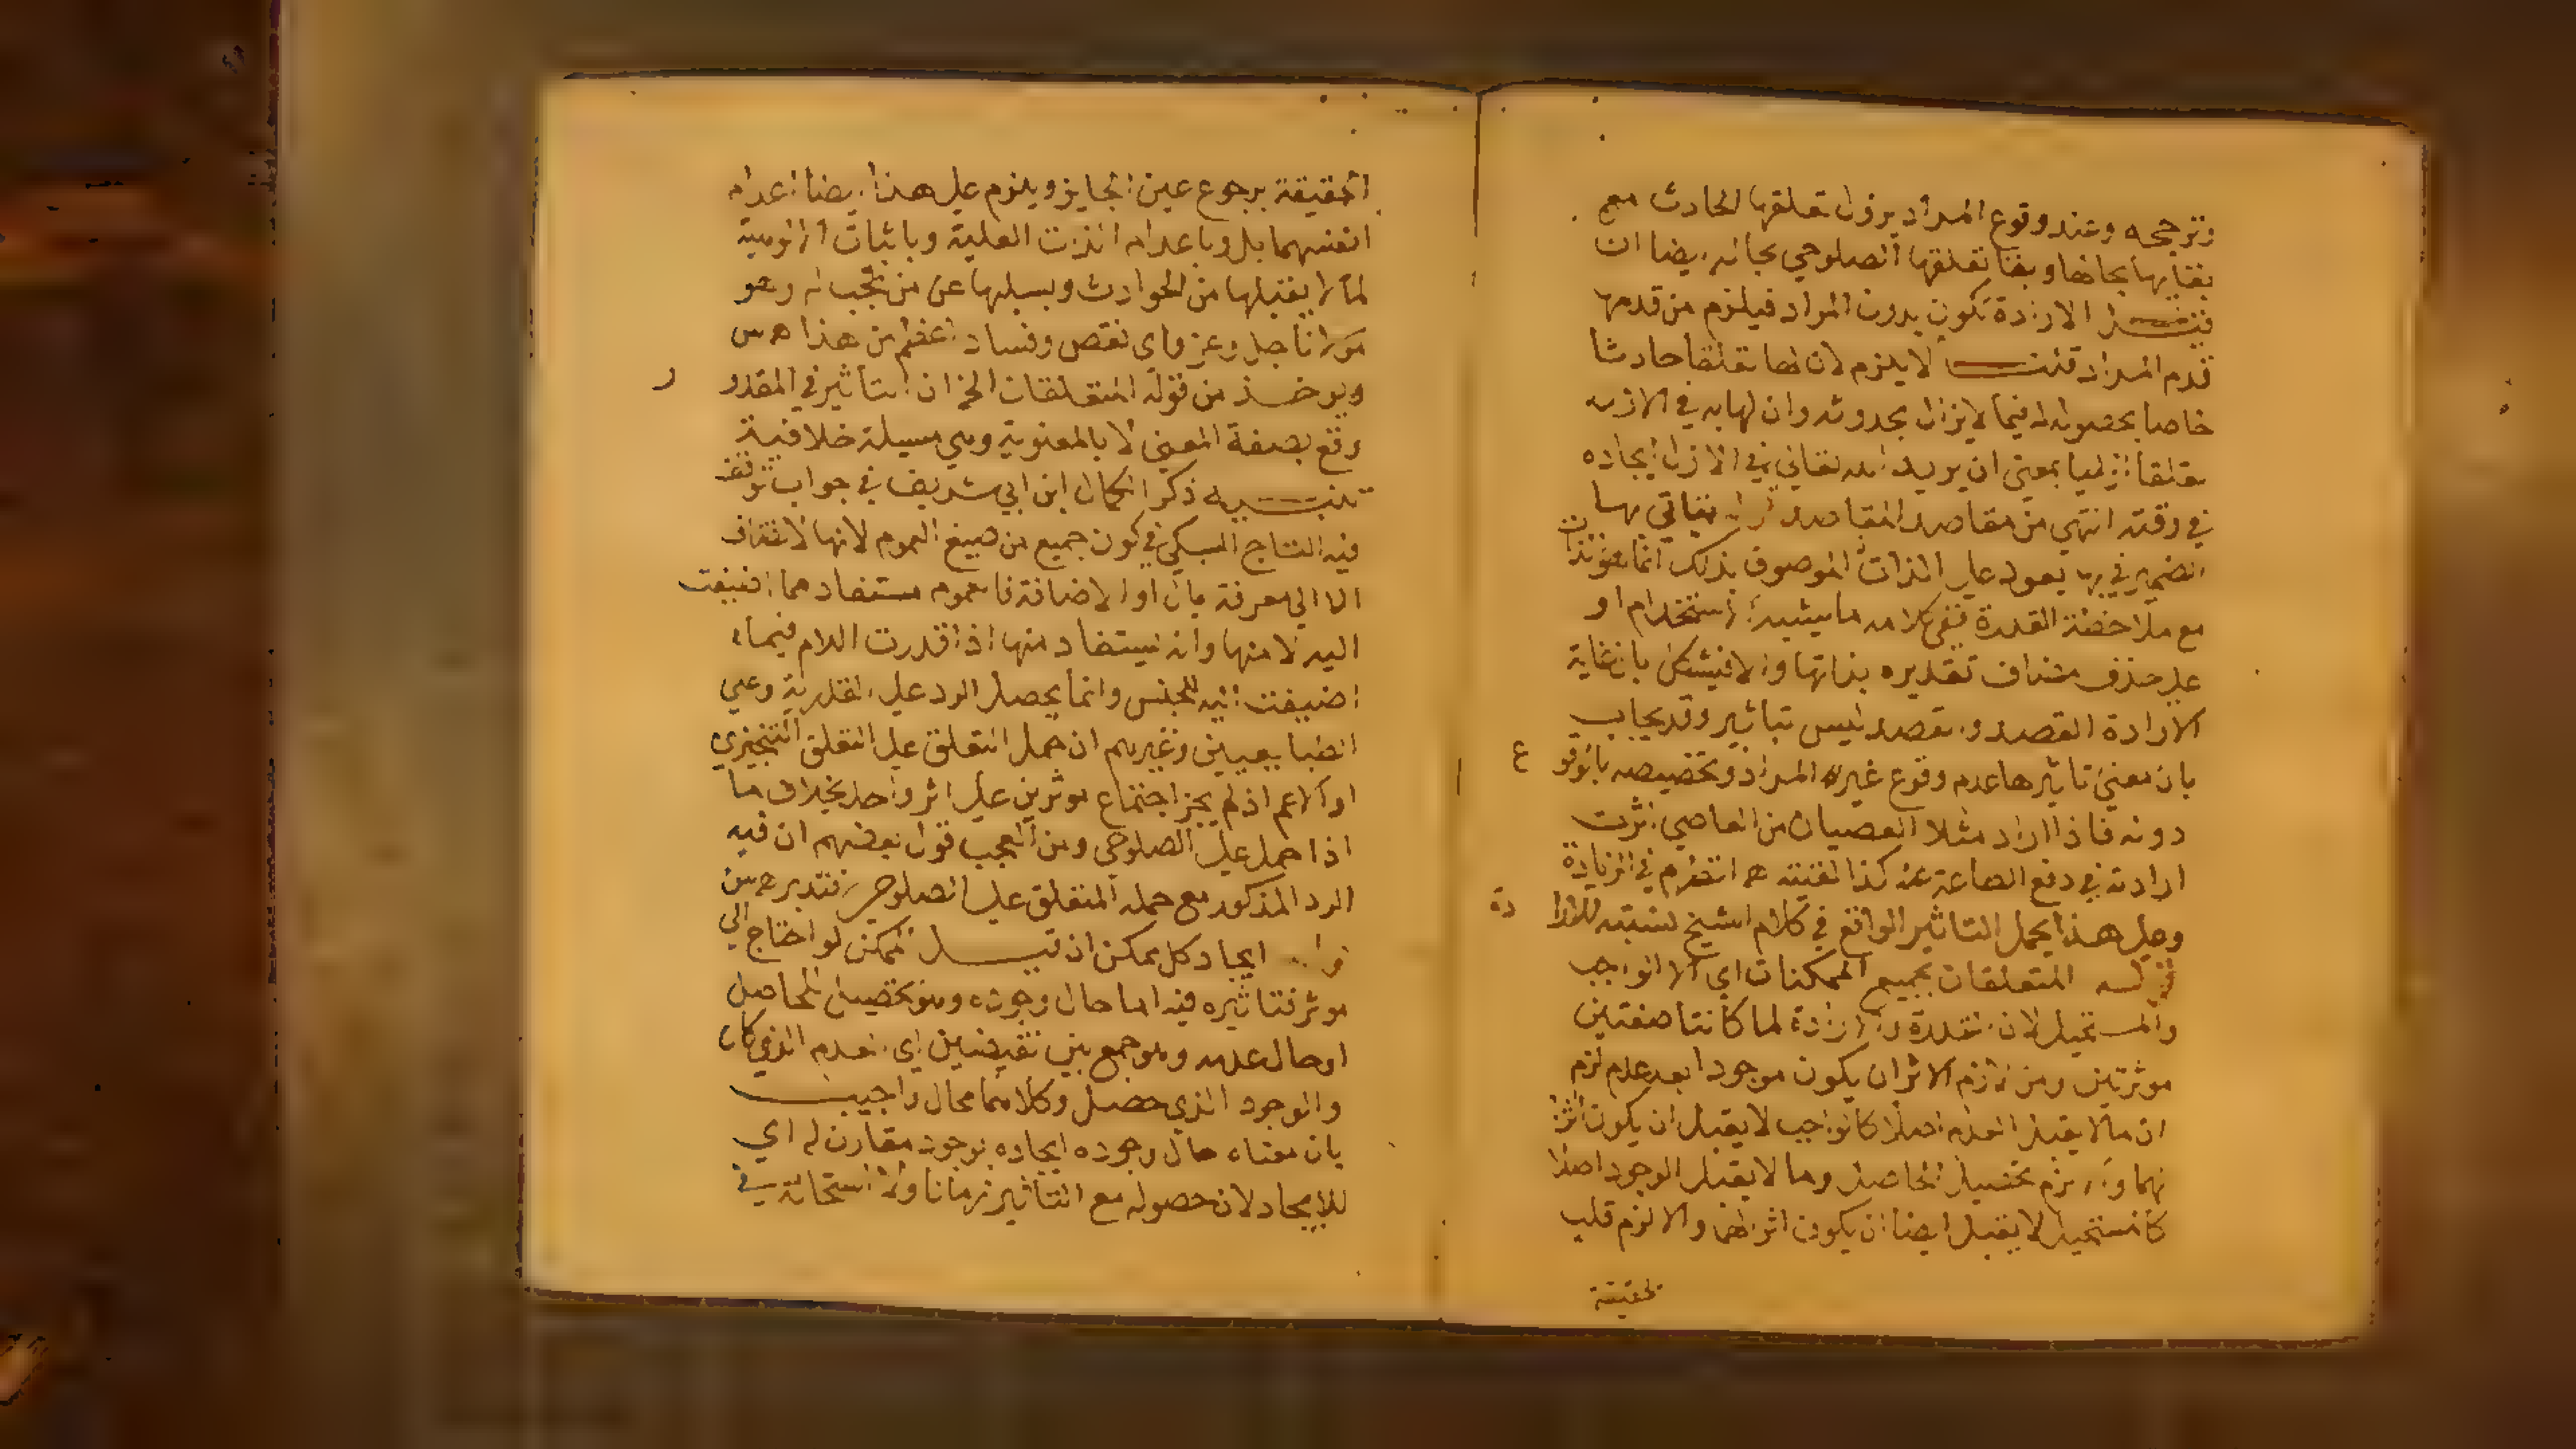 وترجحه وعند وقوع المراد يزول تعلقها الحادث مع
بقايها بحالها وبقا تعلقها الصلوحي بحاله ايضا ان
الارادة تكون بدون المراد فيلزم من قدمها
قدم المراد قلت لا يلزم لان لها تعلقا حادثا
خاصا بحصوله فيما لا يزال بحدوثه وان لها به في الازل
تعلقا ازليا بمعنى ان يريد الله تعالى في الازل ايجاده
في وقته انتهى من مقاصد المقاصد يتاتي بها
الضمير في بها يعود على الذات الموصوف بذلك انما هو للذات
مع ملاحظة القدرة ففي كلامه ما يشبه استخدام او
على حذف مضاف تقديره بذاتها والا فيشكل بان غاية
الارادة القصد والقصد ليس بتاثير وقد يجاب
بان معنى تاثيرها عدم وقوع غير المراد وتخصيصه بالوقوع
دونه فاذا اراد مثلا العصيان من العاصي اثرت
ارادته في دفع الطاعة عنه كذا في الزيادة
وعلى هذا يحمل التاثير الواقع في كلام الشيخ لنسبته للارادة
المتعلقات بجميع الممكنات اي لا الواجب
والمستحيل لان القدرة والارادة لما كانتا صفتين
موثرتين ومن لازم الاثر ان يكون موجودا بعد عدم لزم
ان ما لا يقبل العدم اصلا كالواجب لا يقبل ان يكون اثرا
لهما والا لزم تحصيل الحاصل وما لا يقبل الوجود اصلا
كالمستحيل لا يقبل ايضا ان يكون اثرا لهما والا لزم قلب
الحقيقة
الحقيقة برجوع عين الجايز ويلزم على هذا ايضا اعدام
انفسهما بل وباعدام الذات العلية وباثبات الالوهية
لما لا يقبلها من الحوادث وبسلبها عن من تجب له وهو
مولانا جل وعز واي نقص وفساد اعظم من هذا
ويوخذ من قوله المتعلقات الخ ان التاثير في المقدور
وقع بصفة المعنى لا بالمعنوية وهي مسيلة خلافية
تنبيه ذكر الكمال ابن ابي شريف في جواب توقف
فيه التاج السبكي في كون جميع من صيغ العموم لانها لا تضاف
الا الى معرفة بال او الاضافة فالعموم مستفاد مما اضيفت
اليه لا منها وانه يستفاد منها اذا قدرت اللام فيما
اضيفت اليه للجنس وانما يحصل الرد على القدرية وعلى
الطبايعيين وغيرهم ان حمل التعلق على التعلق التنجيزي
او الاعم اذ لم يجز اجتماع موثرين على اثر واحد بخلاف ما
اذا حمل على الصلوحي ومن العجب قول بعضهم ان فيه
الرد المذكور مع حمله التعلق على الصلوحي فتدبر
ايجاد كل ممكن ان قيل الممكن لو احتاج الى
موثر فتاثيره فيه اما حال وجوده وهو تحصيل الحاصل
او حال عدمه وهو جمع بين نقيضين اي العدم الذي كان
والوجود الذي حصل وكلاهما محال واجيب
بان معناه حال وجوده ايجاده بوجود مقارن له اي
للايجاد لان حصوله مع التاثير زمانا ولا استحالة في